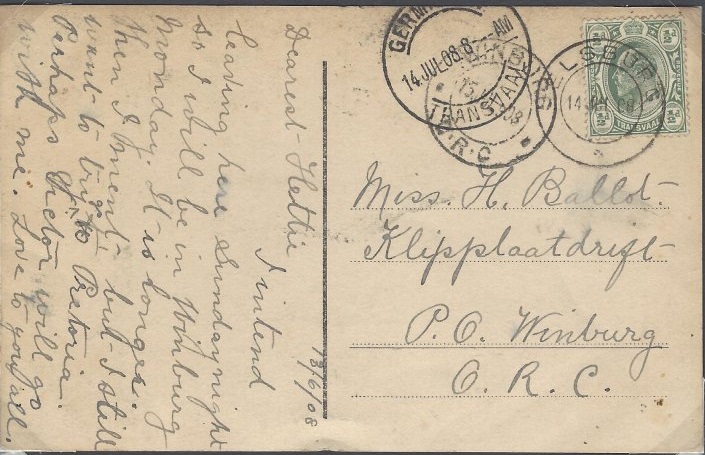 13/6/08
Dearest Hettie
I intend
leaving here Sunday night
so I will be in Winburg
Monday. It is longer
then I ment but I still
want to to Pretoria.
Perhaps Hector will go
with me. Love to you all.
GERM
14 JUL 08 8 AM
TRANSVAAL
BURG
15
O.R.C
LSBURG
14
TRANSVAAL
Miss. H. Ballot.
Klipplaatdrift
P.O. Winburg
O.R.C.